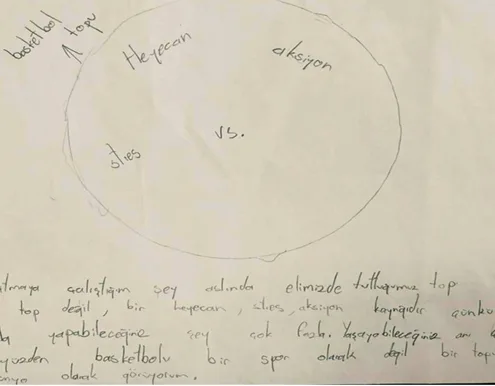 basketbol
topu
Heyecan
aksiyon
vs.
stres
çalıştığım şey aslında elimizde tuttuğumuz top
top değil, bir heyecan, stres, aksiyon kaynağıdır çünkü
yapabileceğiniz şey çok fazla. Yaşayabileceğiniz anı
yüzden basketbolu bir spor olarak değil bir
olarak görüyorum.